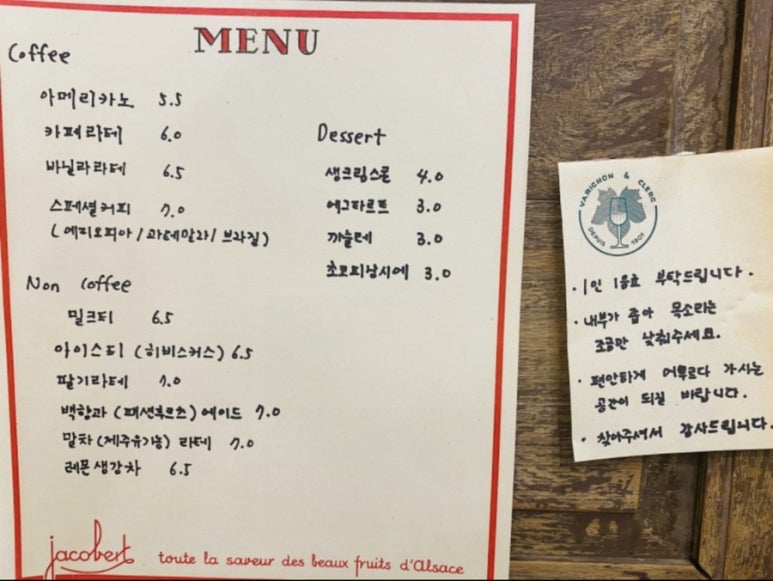 MENU
Coffee
아메리카노 5.5
카페라테 6.0
바닐라라테 6.5
스페셜커피 7.0
(에티오피아/과테말라/브라질)
Non Coffee
밀크티 6.5
아이스티 (히비스커스) 6.5
딸기라테 7.0
백향과 (패션후르츠) 에이드 7.0
말차 (제주유기농) 라테 7.0
레몬생강차 6.5
Dessert
생크림스콘 4.0
에그타르트 3.0
까눌레 3.0
초코피낭시에 3.0
jacobert toute la saveur des beaux fruits d'Alsace
VARICHON & CLERC
DEPUIS 1901
· 1인 1음료 부탁드립니다.
· 내부가 좁아 목소리는
조금만 낮춰주세요.
· 편안하게 머무르다 가시는
공간이 되길 바랍니다.
· 찾아주셔서 감사드립니다.